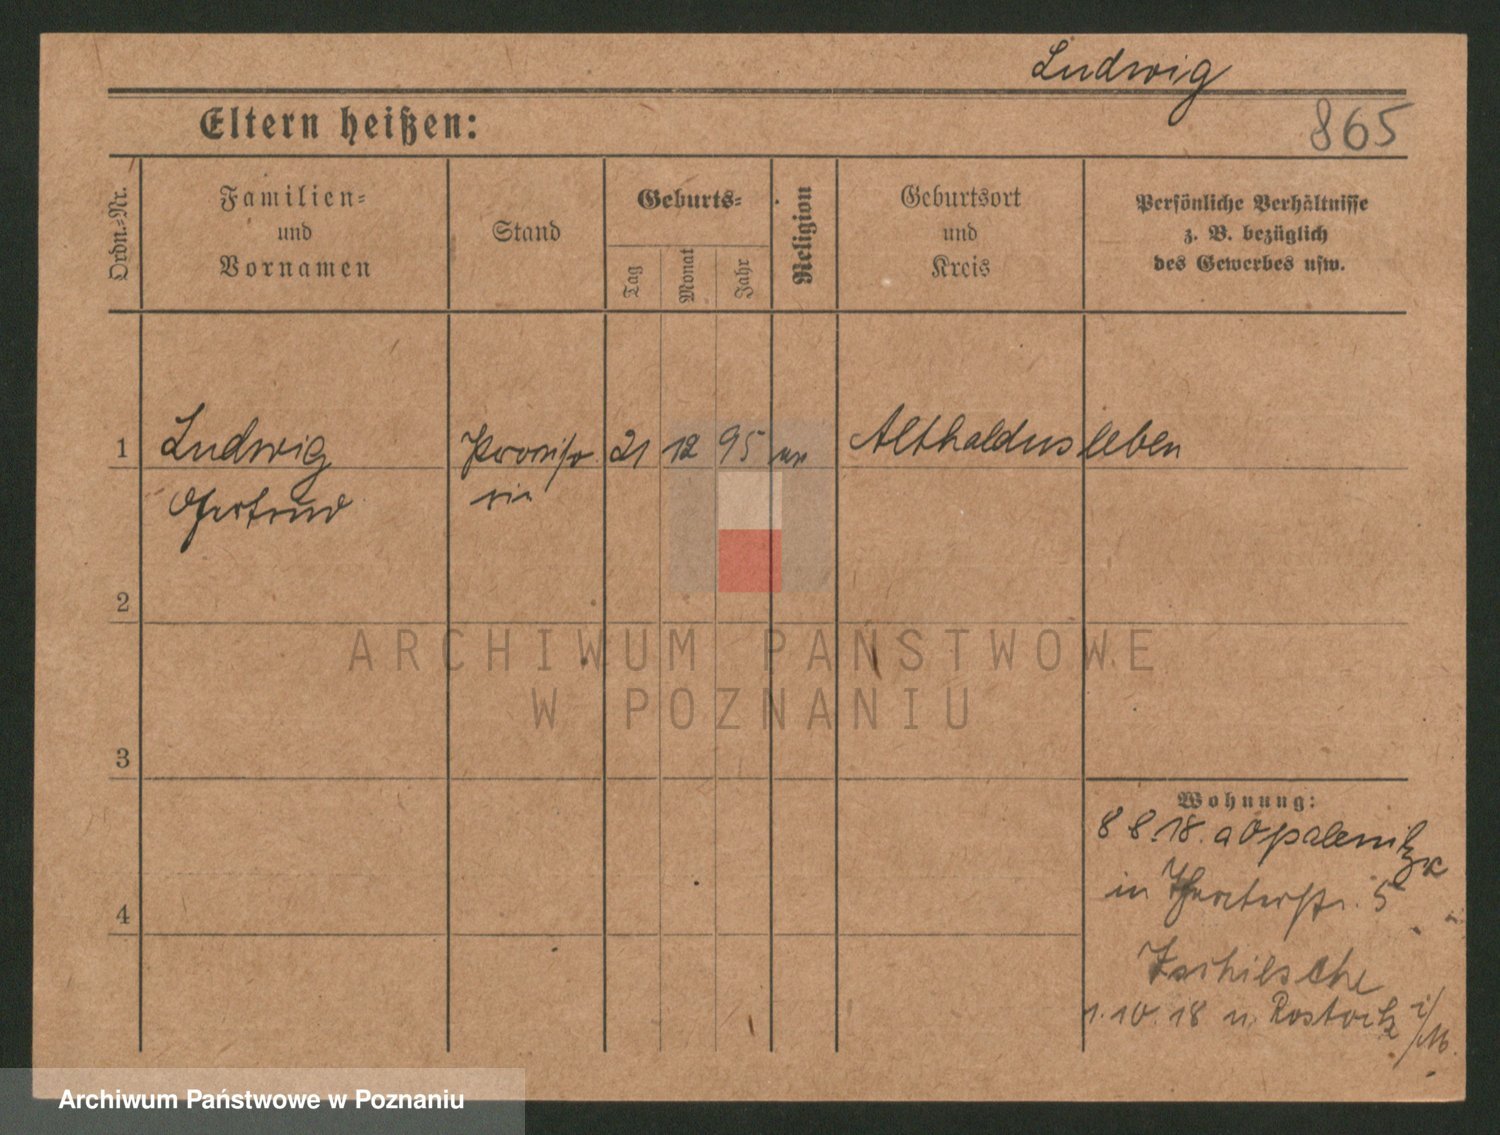 Ludwig
865
Eltern heißen:
Ordn.-Nr.
Familien-
und
Vornamen
Stand
Geburts-
Tag
Monat
Jahr
Religion
Geburtsort
und
Kreis
Persönliche Verhältnisse
z. B. bezüglich
des Gewerbes usw.
1
Ludwig
Provisor
21
12
95
Althaldensleben
Gertrud
rin
2
ARCHIWUM PAŃSTWOWE
W POZNANIU
3
Wohnung:
8.8.18. a Opalenitza
in Theaterstr. 5
4
1.10.18 n. Rostock i/M.
Archiwum Państwowe w Poznaniu